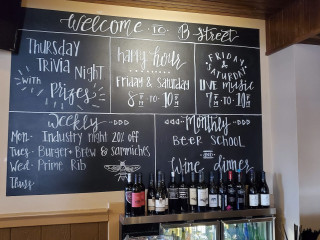 Welcome to B Street
Thursday
Trivia Night
with Prizes
happy hour
Friday & Saturday
8pm to 10pm
Friday &
Saturday
Live music
7pm to 10pm
Weekly
Mon. Industry night 20% off
Tues. Burger + Brew & Sammiches
Wed. Prime Rib
Thurs.
Monthly
Beer School
Wine dinner